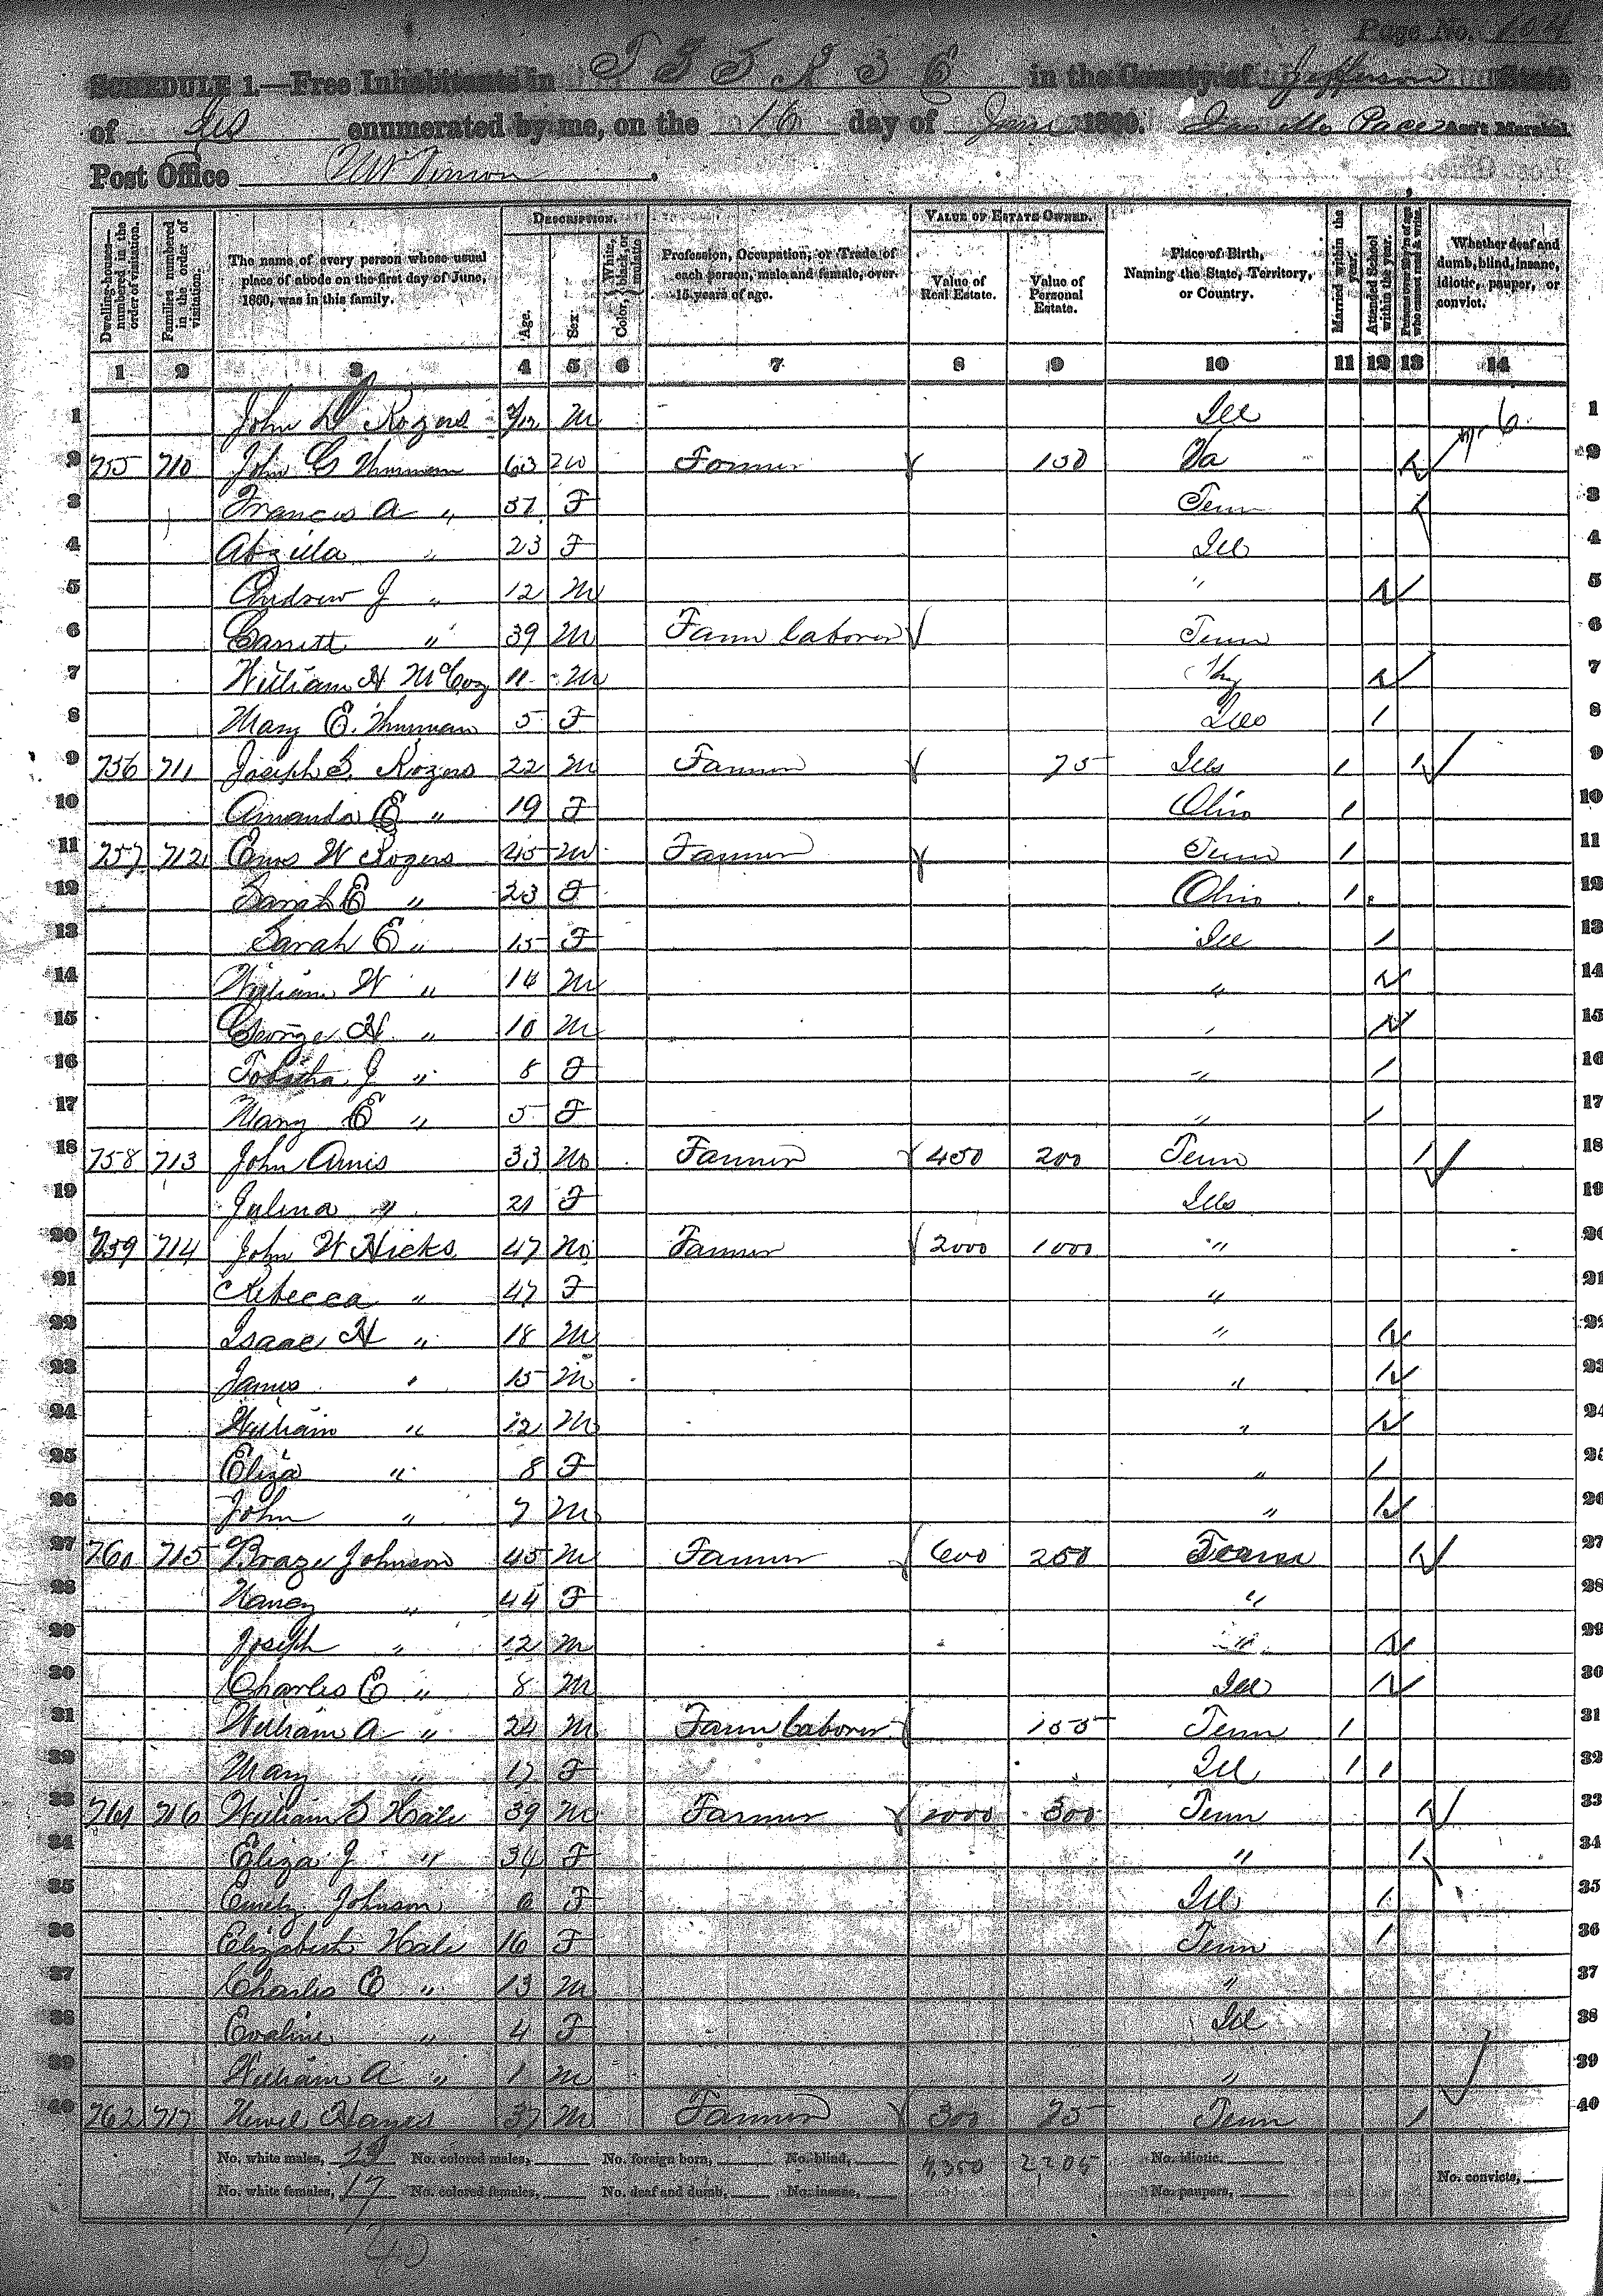 Page No. 104
SCHEDULE 1.—Free Inhabitants in T 3 S R 3 E in the County of Jefferson State
of Ills enumerated by me, on the 16 day of 1860. Pace Ass't Marshal.
Post Office Mt Vernon.
Dwelling-houses—numbered in the order of visitation.
Families numbered in the order of visitation.
The name of every person whose usual place of abode on the first day of June, 1860, was in this family.
DESCRIPTION.
Age.
Sex
Color, White, black, or mulatto
Profession, Occupation, or Trade of each person, male and female, over 15 years of age.
VALUE OF ESTATE OWNED.
Value of Real Estate.
Value of Personal Estate.
Place of Birth, Naming the State, Territory, or Country.
Married within the year.
Attended School within the year.
Persons over 20 y'rs of age who cannot read & write.
Whether deaf and dumb, blind, insane, idiotic, pauper, or convict.
1 2 3 4 5 6 7 8 9 10 11 12 13 14
1 John Rogers /12 M Ill 1
2 755 710 John G Thurman 63 M Farmer 150 Va 2
3 Francis A " 57 F Tenn 3
4 " 23 F Ill 4
5 Andrew J " 12 M " 1 5
6 Garrett " 39 M Farm laborer Tenn 6
7 William H McCoy 11 M Ky 1 7
8 Mary E. Thurman 5 F Ills 1 8
9 756 711 Joseph S. Rogers 22 M Farmer 75 Ills 1 1 9
10 Amanda E " 19 F Ohio 1 10
11 757 712 W Rogers 45 M Farmer Tenn 1 11
12 Sarah E " 23 F Ohio 1 12
13 Sarah E " 15 F Ill 1 13
14 William W " 14 M " 1 14
15 George H " 10 M " 1 15
16 Tobitha J " 8 F " 1 16
17 Mary E " 5 F " 1 17
18 758 713 John Amis 33 M Farmer 450 200 Tenn 1 18
19 Julina " 21 F Ills 19
20 759 714 John W Hicks 47 M Farmer 2000 1000 " 20
21 Rebecca " 47 F " 21
22 Isaac H " 18 M " 1 22
23 James " 15 M " 1 23
24 William " 12 M " 1 24
25 Eliza " 8 F " 1 25
26 John " 7 M " 1 26
27 760 715 Johnson 45 M Farmer 600 250 Tenn 1 27
28 Nancy " 44 F " 28
29 Joseph " 12 M " 1 29
30 Charles E " 8 M Ill 1 30
31 William A " 24 M Farm laborer 155 Tenn 1 31
32 Mary " 17 F Ill 1 1 32
33 761 716 William S Hale 39 M Farmer 1000 300 Tenn 1 33
34 Eliza J " 34 F " 1 34
35 Emily Johnson 6 F Ill 1 35
36 Elizabeth Hale 16 F Tenn 1 36
37 Charles E " 13 M " 37
38 Evaline " 4 F Ill 38
39 William A " 1 M " 39
40 762 717 37 M Farmer 300 75 Tenn 1 40
No. white males, No. colored males, No. foreign born, No. blind, 4,350 2,205 No. idiotic,
No. white females, 17 No. colored females, No. deaf and dumb, No. insane, No. paupers, No. convicts,
40